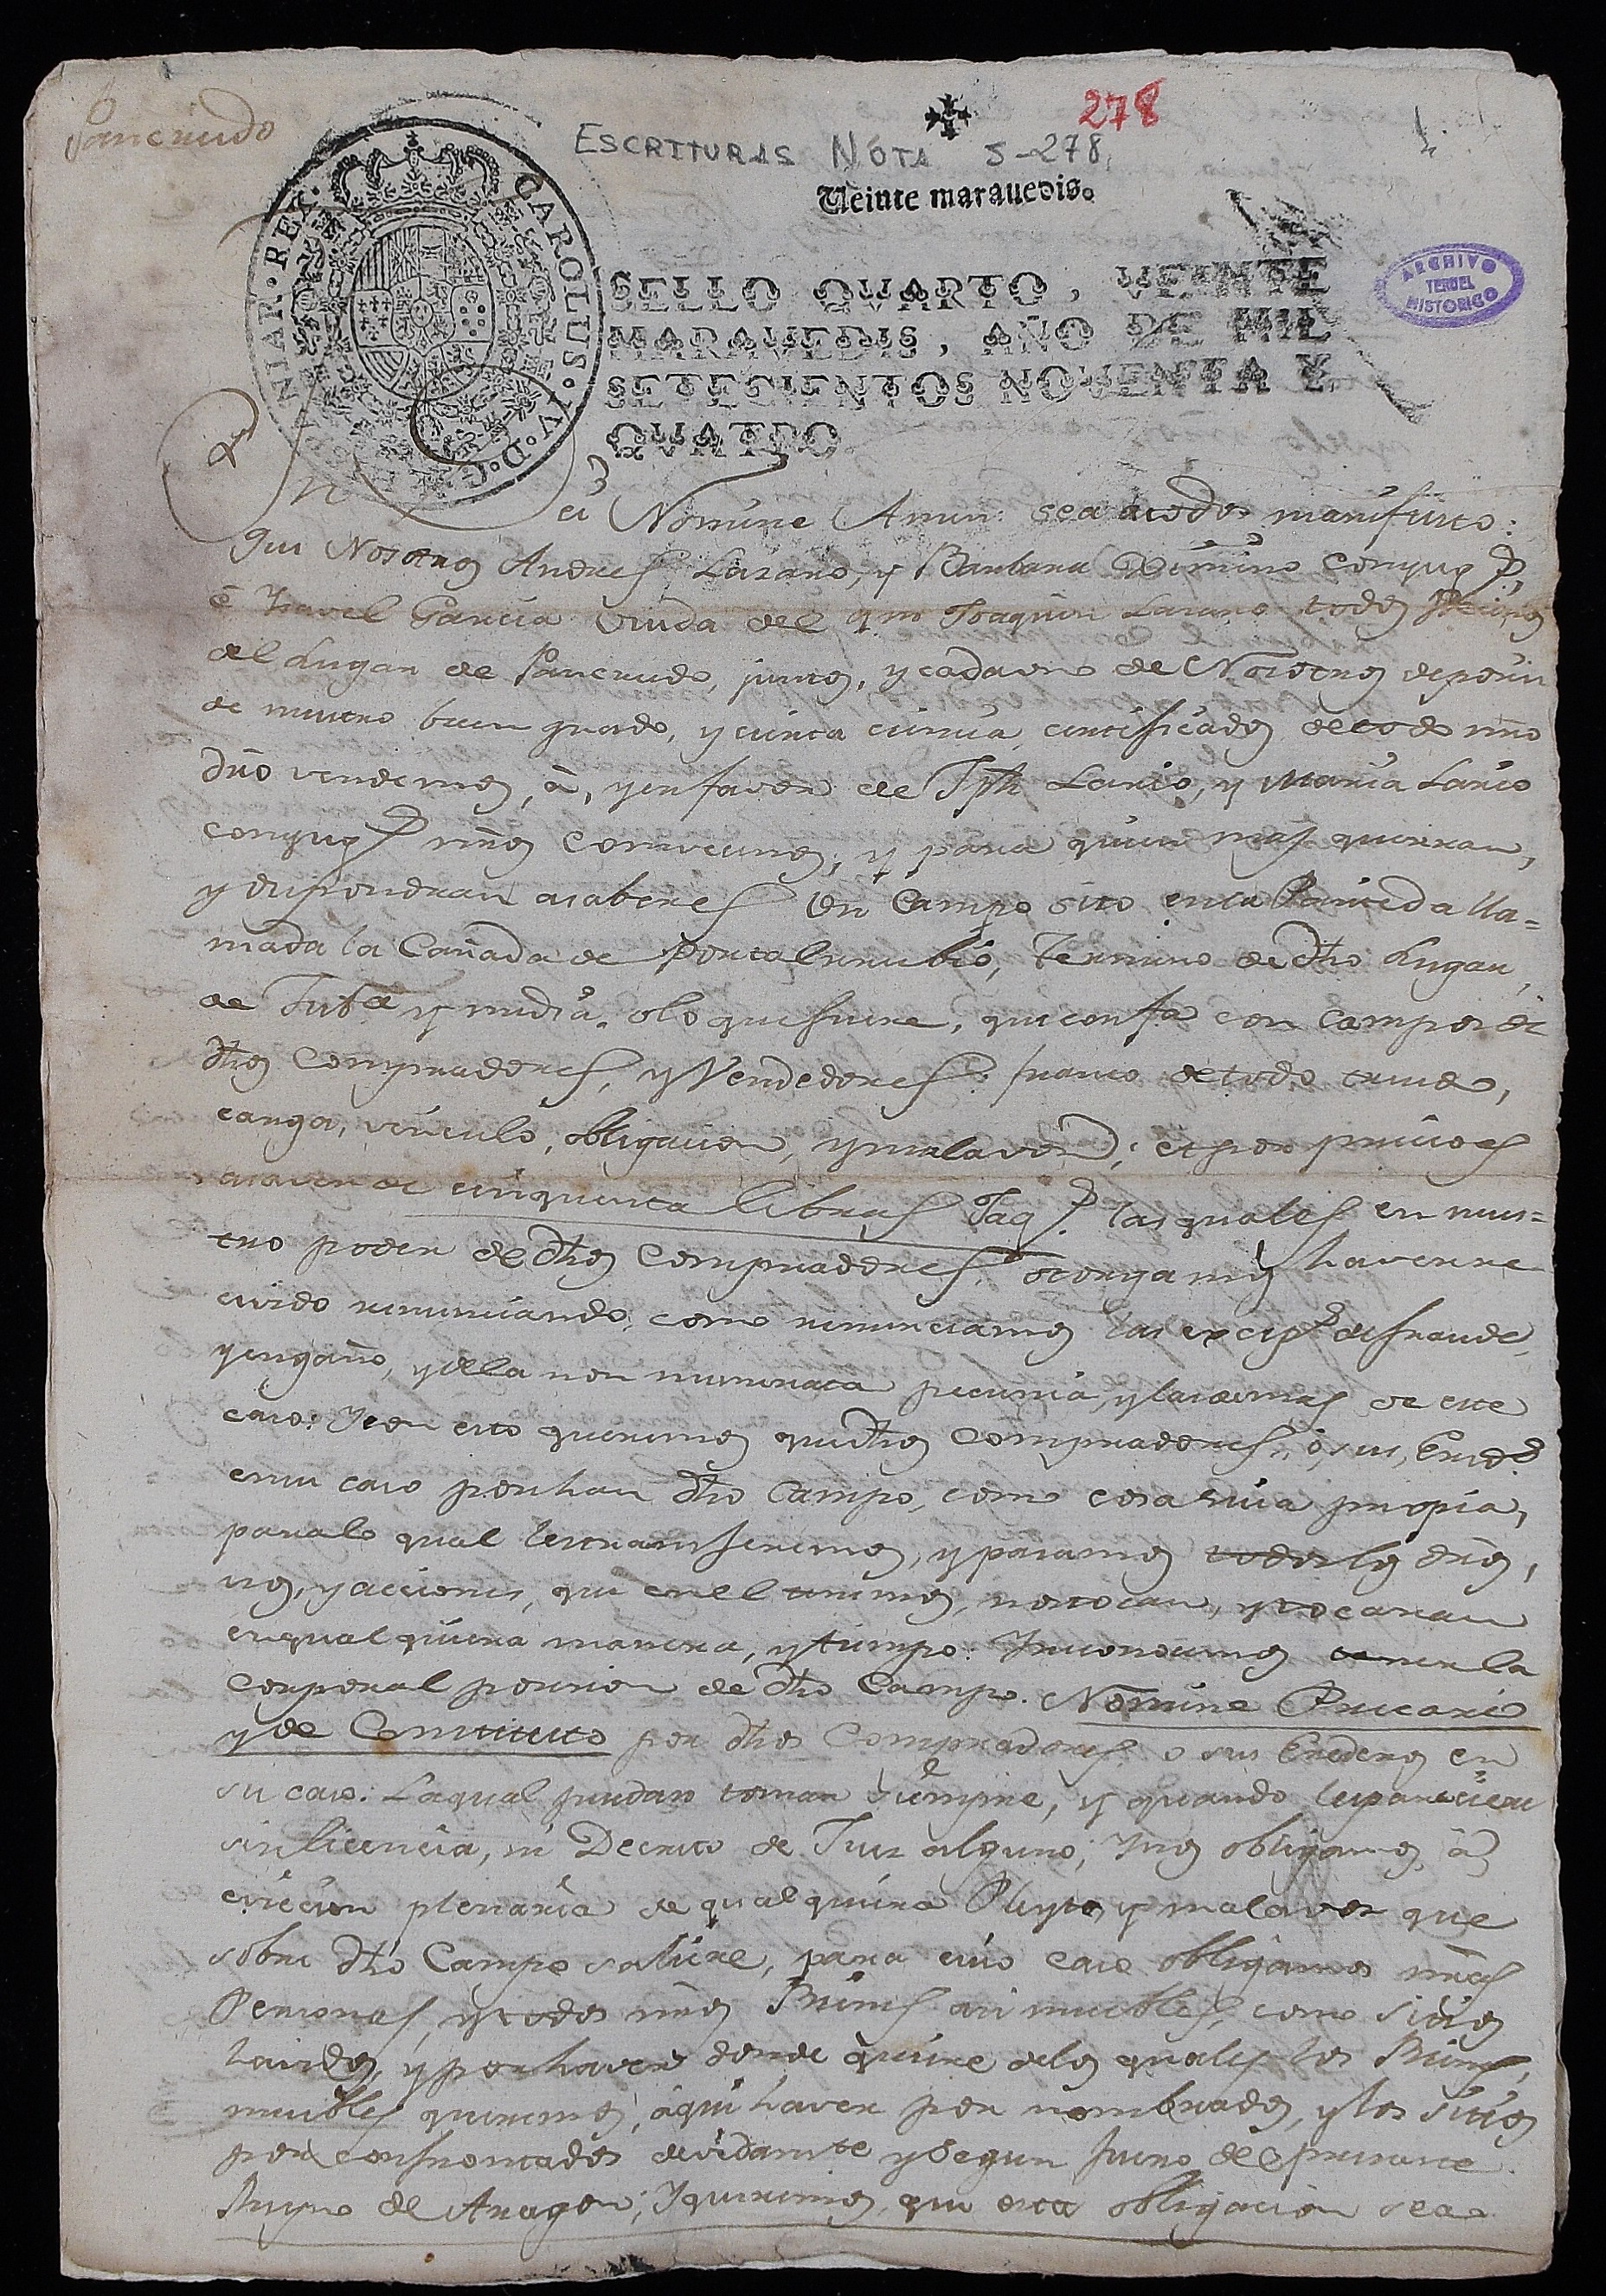 Pancrudo
278
ESCRITURAS NOTA 5-278
Veinte marauedis.
CAROLUS·IV·D·G·HISPANIAR·REX·
SELLO QVARTO, VEINTE
MARAVEDIS, AÑO DE MIL
SETECIENTOS NOVENTA Y
QVATRO
ARCHIVO HISTORICO TERUEL
In Dei Nomine Amen: sea a todos manifiesto:
que Nosotros Andres Lazaro, y Barbara Ximeno conyug.s,
é Ysavel Garcia Viuda del qm Joaquin Lazaro todos Vecinos
del Lugar de Pancrudo, juntos, y cadauno de Nosotros deporsi
de nuestro buen grado, y cierta ciencia, certificados detodo nro
dro vendemos, à, yenfavor de Jph Lario, y Maria Lario
conyug.s nros Convecinos, y para quien mas querran,
y dispondran asaberes Un Campo sito enla Partida lla=
mada la Cañada de Portalrrubio, termino de dho Lugar,
de Jub.a y media, olo quefuere, que confr.a con Campos de
dhos Compradores, y Vendedores: franco detodo treudo,
carga, vinculo, obligacion, y malavoz; et por precio es
asaver de cinquenta libras Jaq.s las quales en nues=
tro poder de dhos Compradores, otorgamos haverre
civido renunciando, como renunciamos las excep.s defraude,
yengaño, ydela non numerata pecunia, ylasdemas de este
caso: Y con esto queremos que dhos Compradores, ò, sus, Ered.s
ensu caso posehan dho Campo, como cosa suia propia,
paralo qual lestransferimos, y pasamos todoslos dros,
usos, yacciones, que enel tenemos, nostocan, ytocaran
enqualquiera manera, ytiempo: Yreconocemos tenerla
Corporal posesion de dho Campo. Nomine Precario
y de Constituto por dhos Compradores o sus Erederos en
su caso: Laqual puedan tomar siempre, y quando lespareciere
sin licencia, ni Decreto de Juez alguno; Ynos obligamos, à,
eviccion plenaria de qualquiera Pleyto, y malavoz que
sobre dho Campo saliere, para cuio caso obligamos nras
Personas, y todos nros Bienes asi muebles, como sitios
havidos, y por haver donde quiere delos quales los Bienes
muebles queremos, aqui haver por nombrados, y los sitios
por confrontados devidam.te y Segun fuero del presente
Reyno de Aragon; Y queremos, que esta obligacion sea